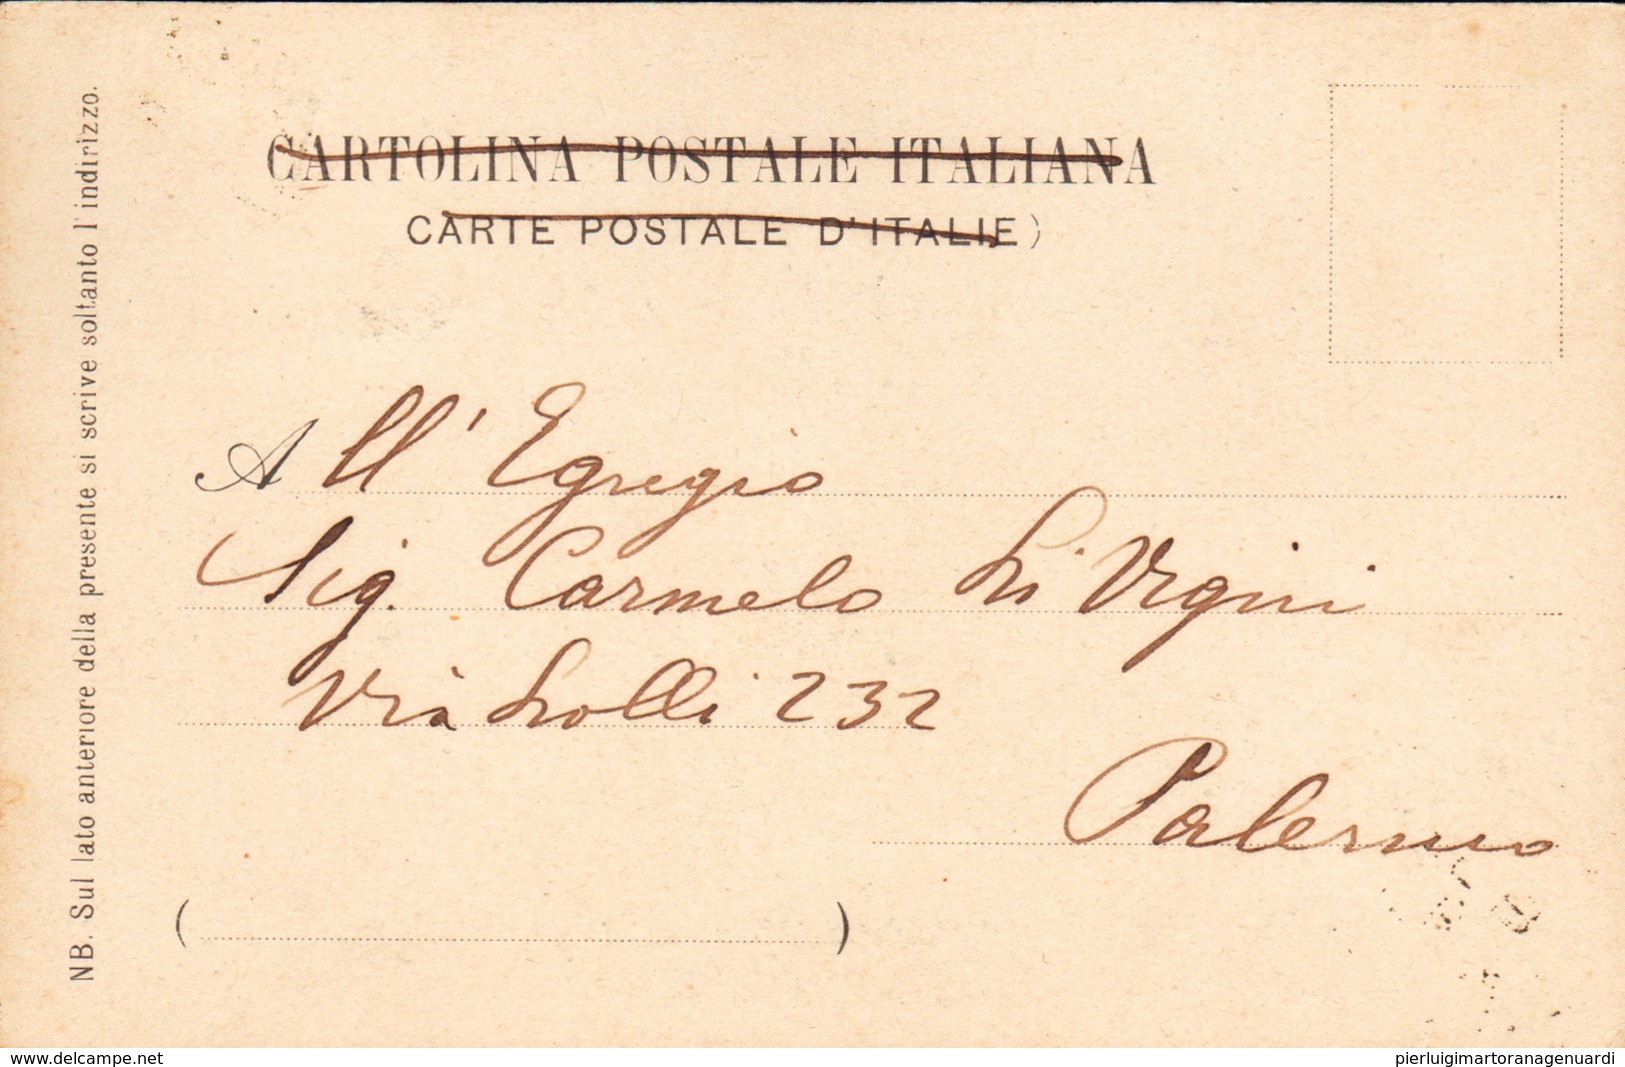 CARTOLINA POSTALE ITALIANA
CARTE POSTALE D'ITALIE)
All' Egregio
Sig. Carmelo Li Vigni
Via Lolli 232
Palermo
( )
NB. Sul lato anteriore della presente si scrive soltanto l'indirizzo.
www.delcampe.net
pierluigimartoranagenuardi